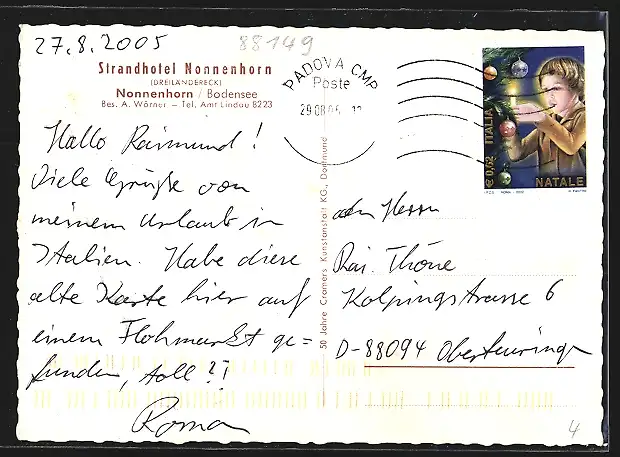 27.8.2005
88149
Strandhotel Nonnenhorn
(DREILÄNDERECK)
Nonnenhorn / Bodensee
Bes. A. Wörner — Tel. Amt Lindau 8223
Hallo Raimund!
Viele Grüße von
meinem Urlaub in
Italien. Habe diese
alte Karte hier auf
einem Flohmarkt ge=
funden, toll?!
Roman
50 Jahre Cramers Kunstanstalt KG., Dortmund
PADOVA CMP
Poste
29 08 05
€ 0,52 ITALIA
NATALE
ROMA
an Herrn
Rai. Thöne
Kolpingstrasse 6
D-88094 Oberteuringen
4